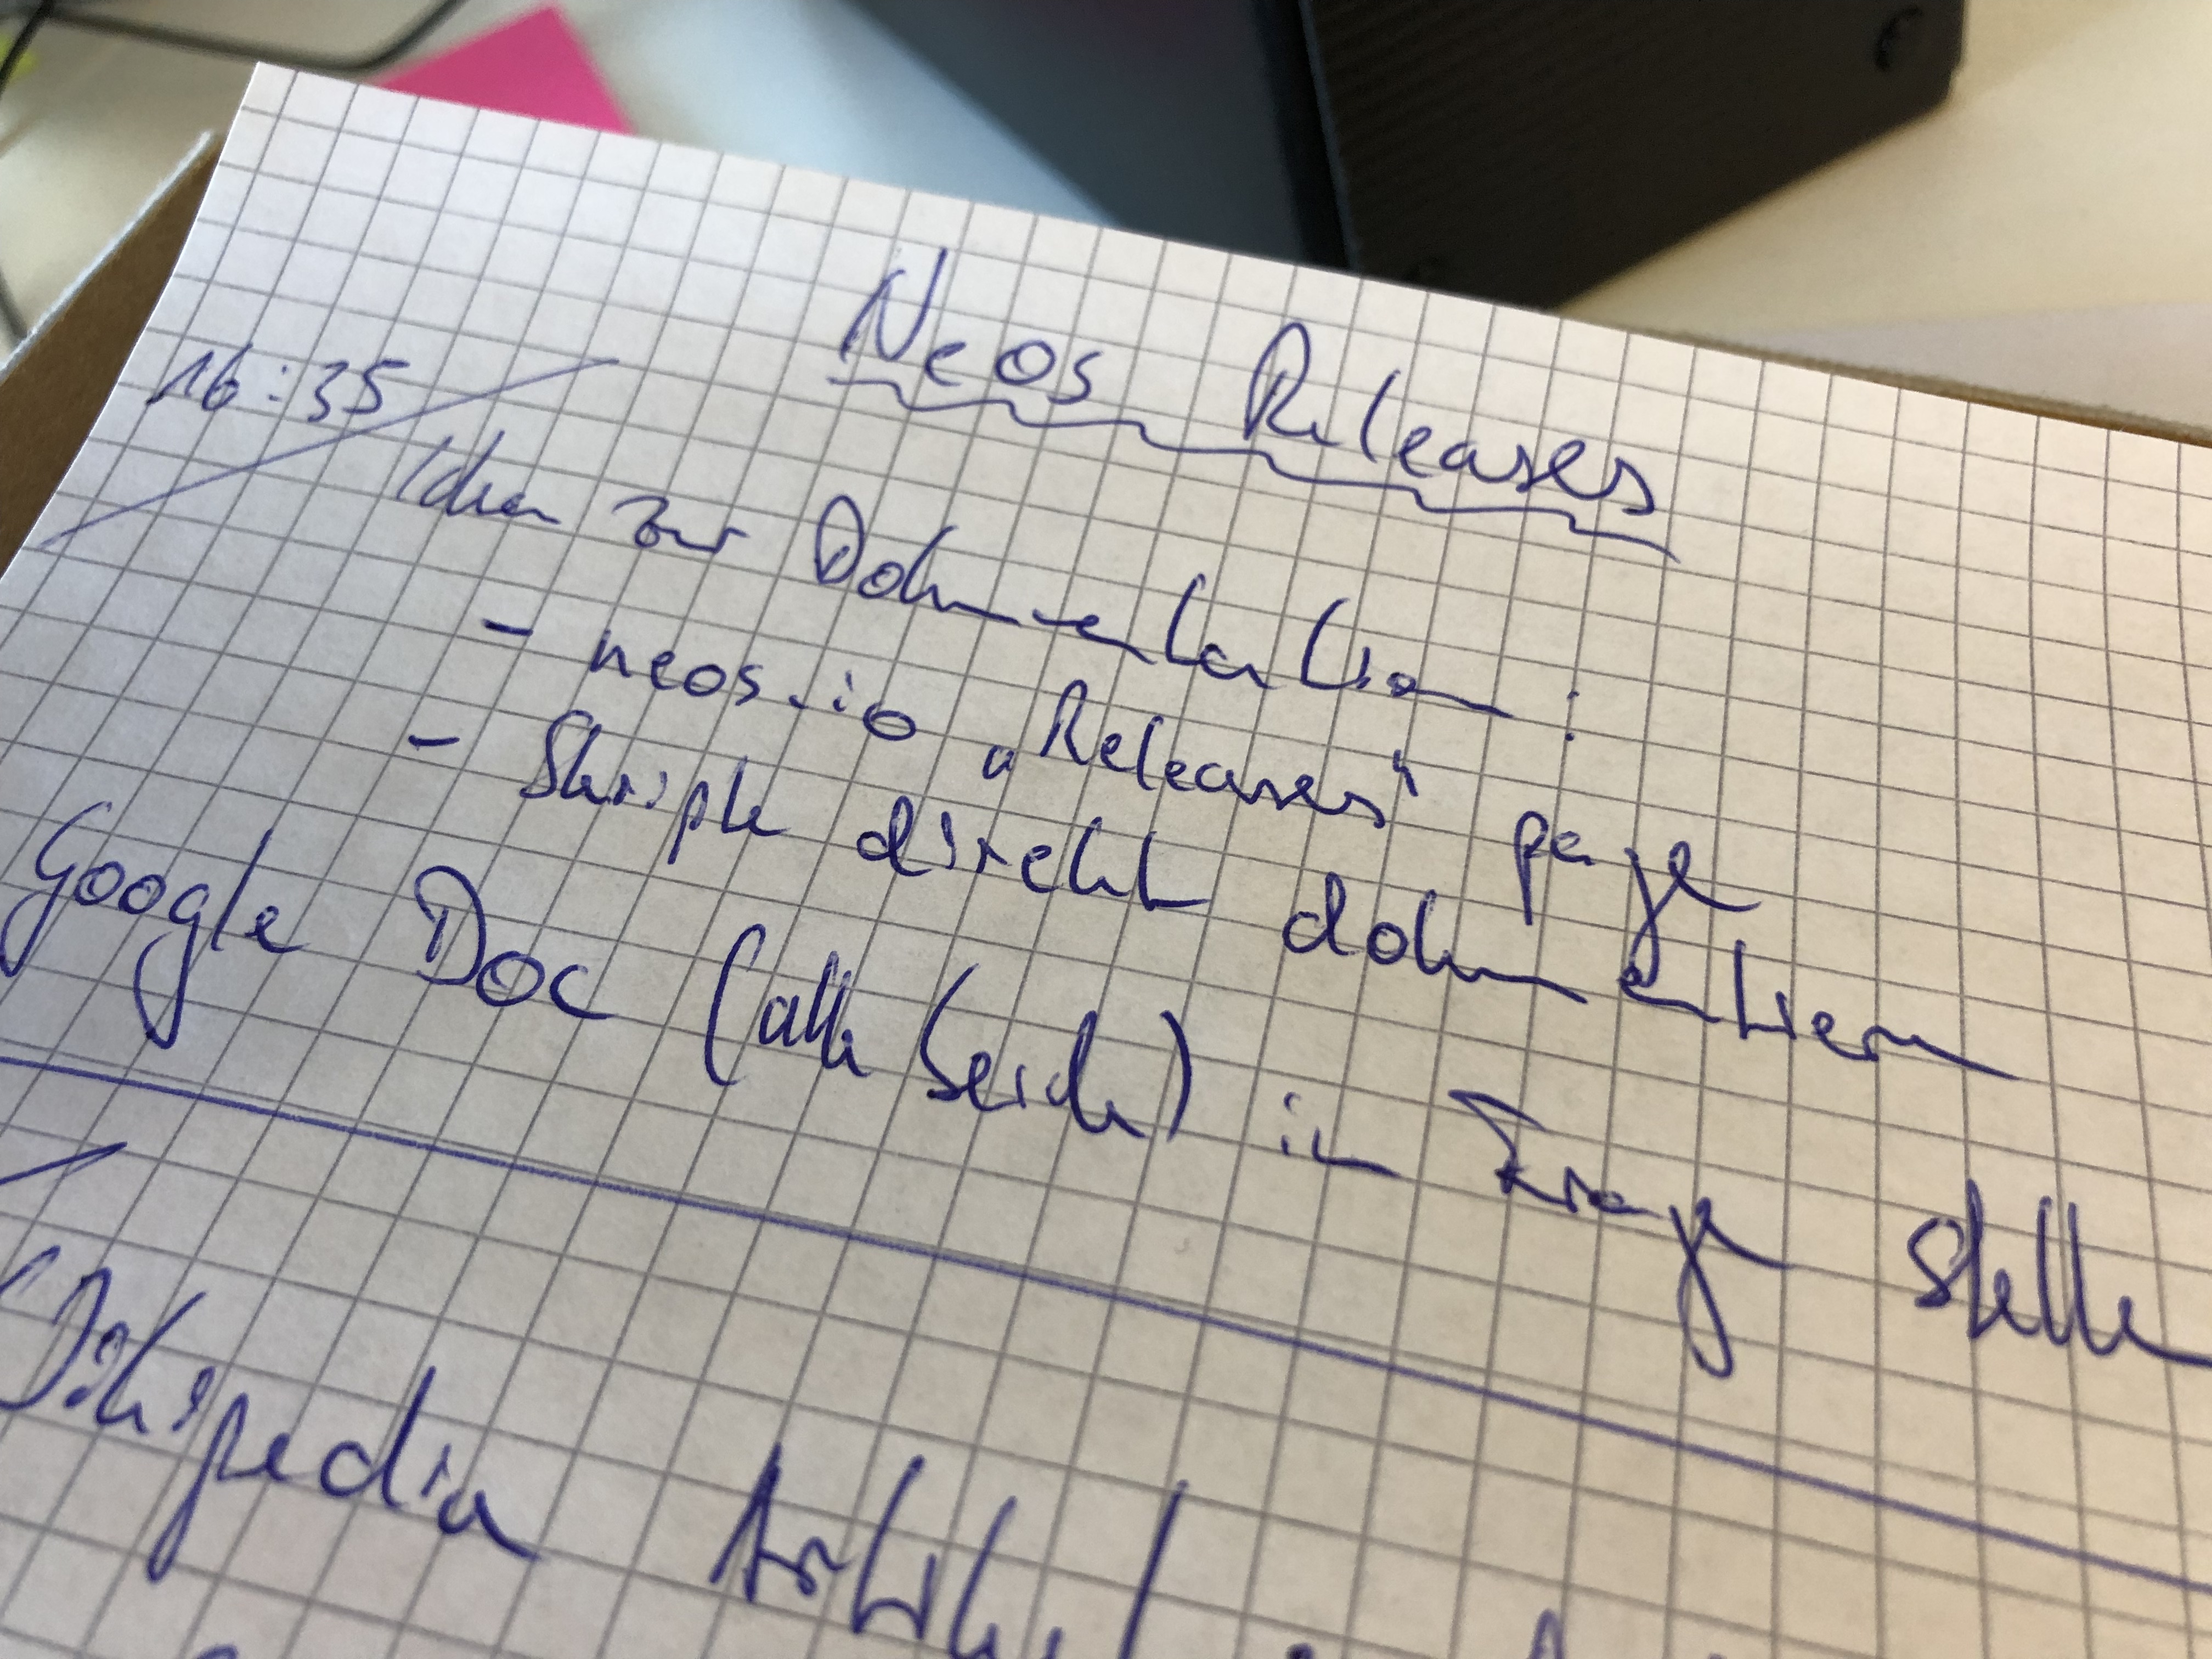 Neos Releases
16:35
Ideen zur Dokumentation:
- neos.io „Releases“ page
- Skripte direkt dokumentieren
Google Doc (alle beide) in Frage stellen
Wikipedia Artikel